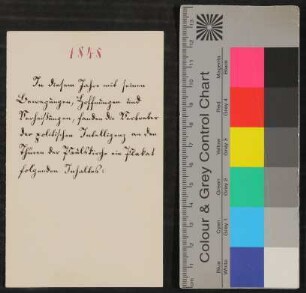 1848
In diesem Jahre mit seinen
Bewegungen, Hoffnungen und
Verheißungen, fanden die Vertreter
der politischen Intelligenz an den
Thüren der Paulskirche ein Plakat
folgenden Inhaltes:
Colour & Grey Control Chart
Blue
Cyan
Green
Yellow
Red
Magenta
White
Grey 1
Grey 2
Grey 3
Grey 4
Black